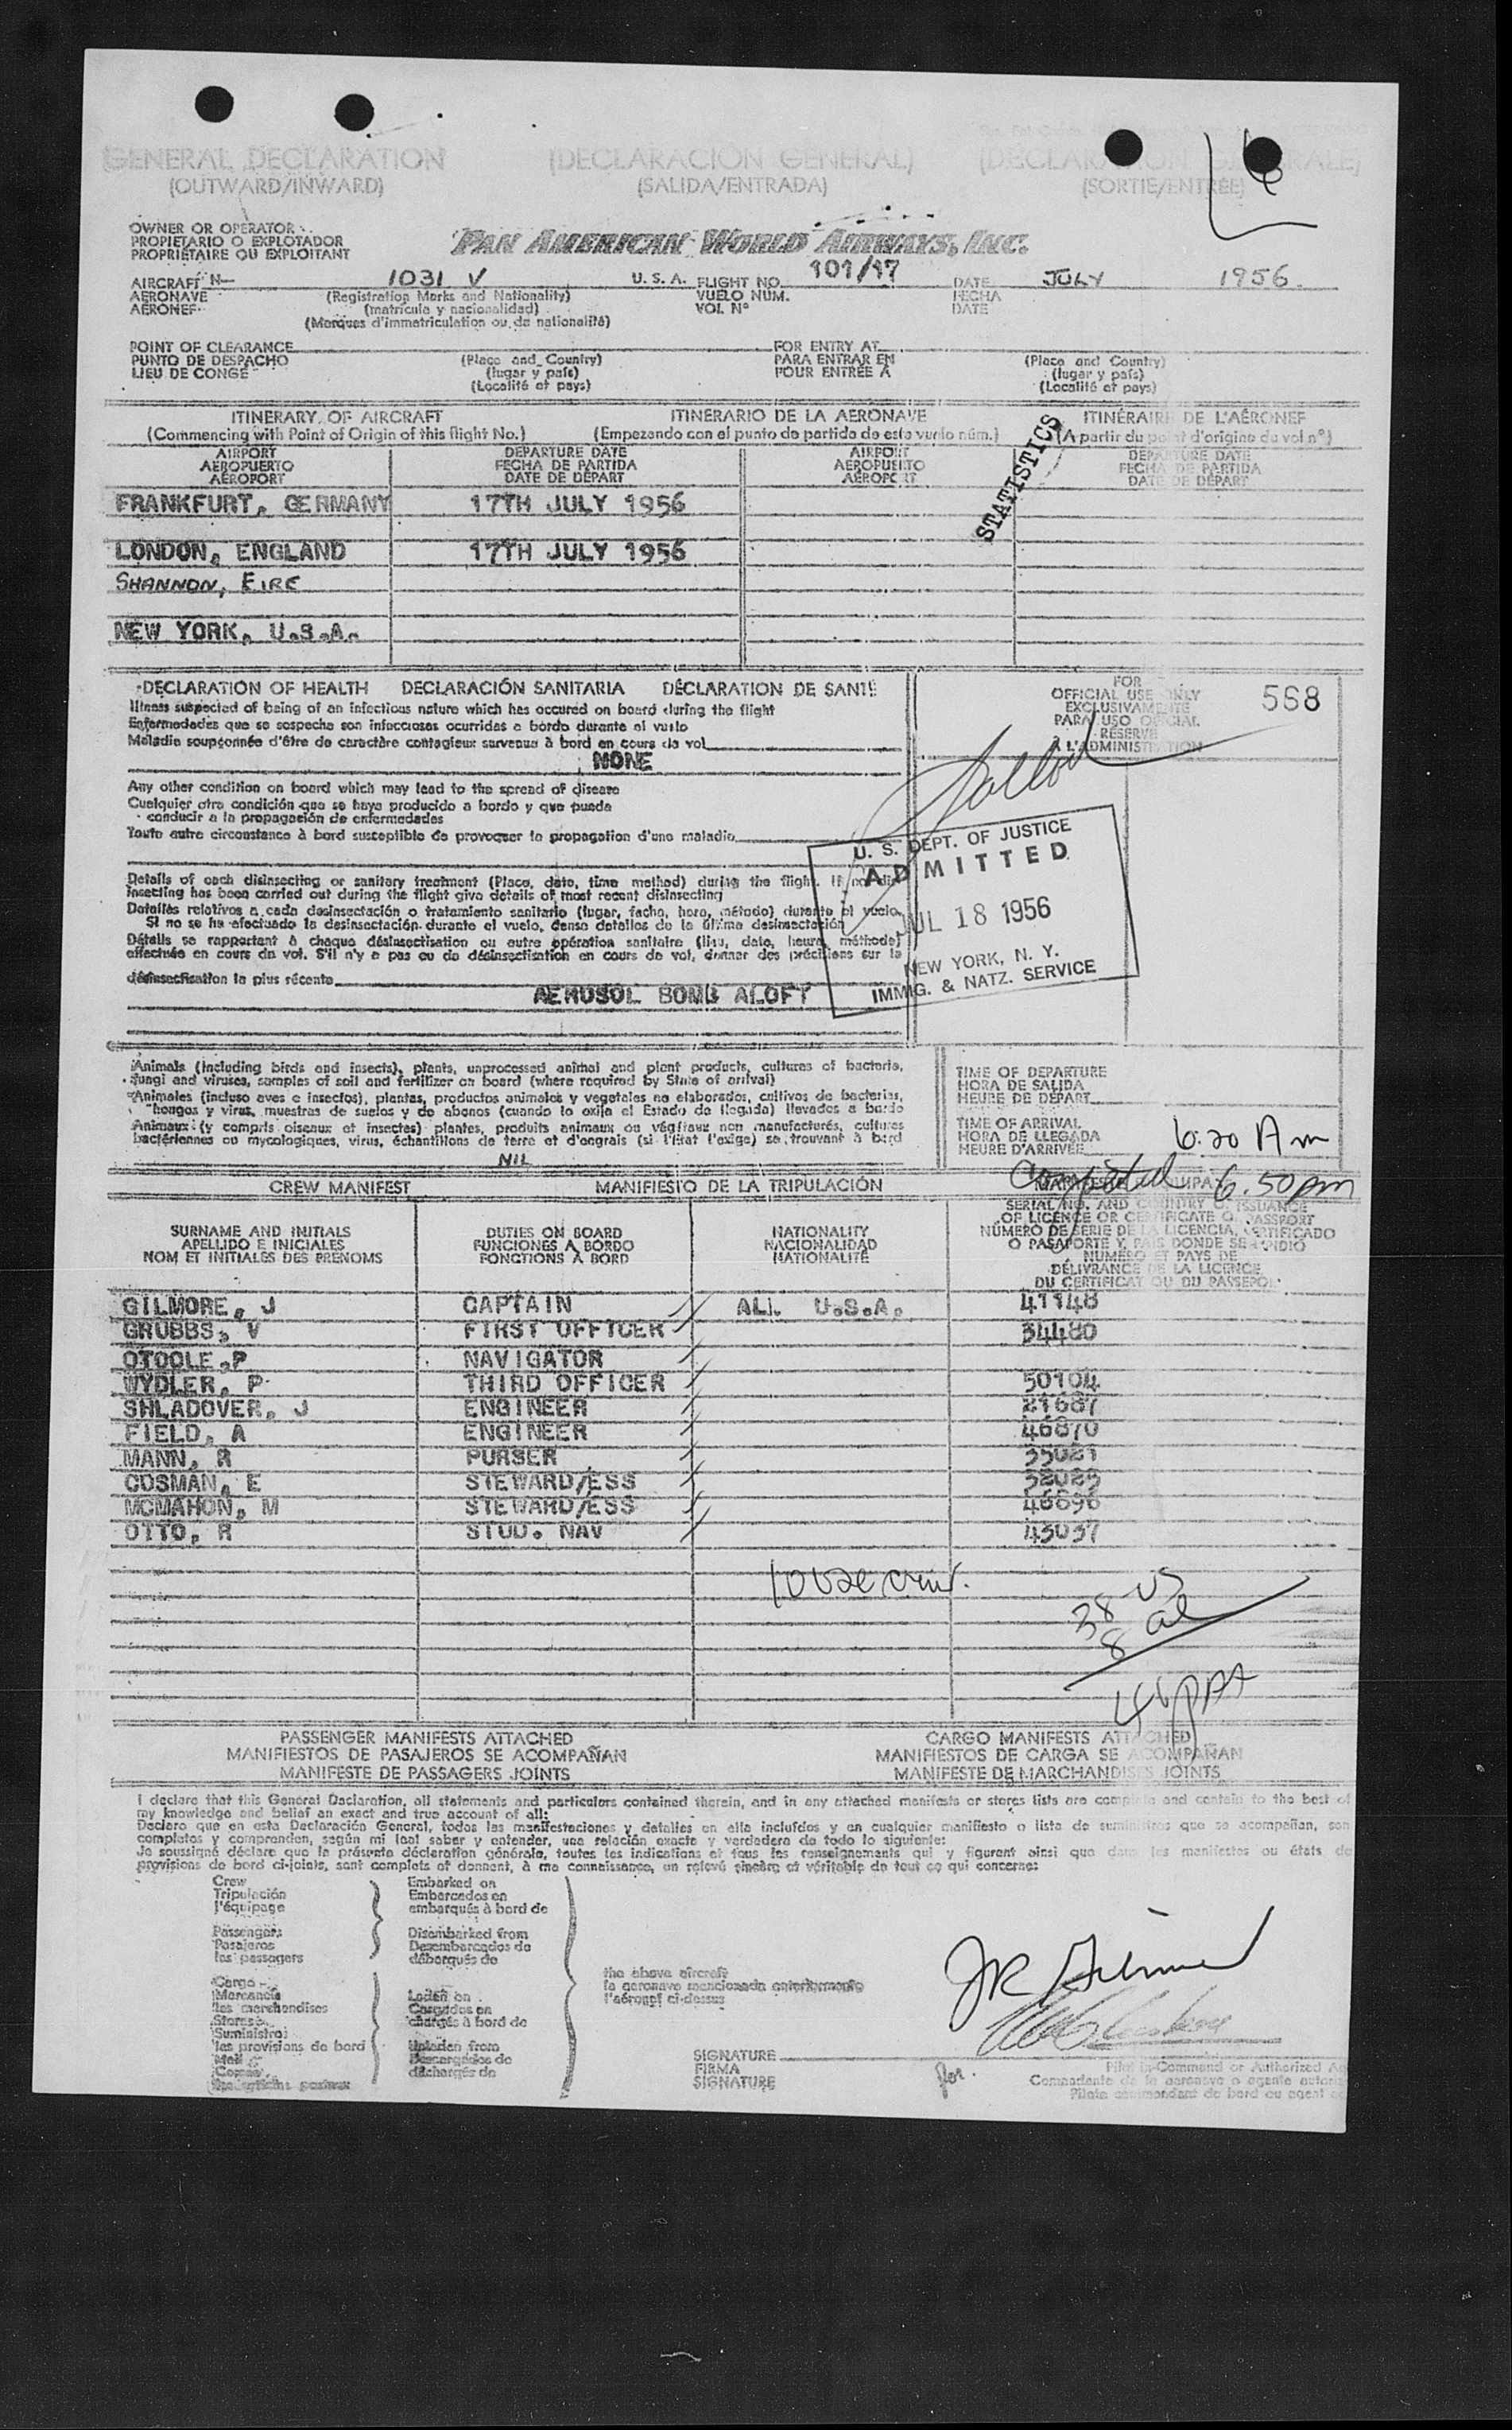 GENERAL DECLARATION (DECLARACIÓN GENERAL) (DECLARATION GENERALE)
(OUTWARD/INWARD) (SALIDA/ENTRADA) (SORTIE/ENTRÉE)
OWNER OR OPERATOR
PROPIETARIO O EXPLOTADOR
PROPRIÉTAIRE OU EXPLOITANT
PAN AMERICAN WORLD AIRWAYS, INC.
AIRCRAFT N- 1031 V U. S. A. FLIGHT NO. 101/17 DATE JULY 1956.
AERONAVE (Registration Marks and Nationality) VUELO NUM. FECHA
AÉRONEF (matrícula y nacionalidad) VOL Nº DATE
(Marques d'immatriculation ou de nationalité)
POINT OF CLEARANCE FOR ENTRY AT
PUNTO DE DESPACHO (Place and Country) PARA ENTRAR EN (Place and Country)
LIEU DE CONGÉ (lugar y país) POUR ENTRÉE A (lugar y país)
(Localité et pays) (Localité et pays)
ITINERARY OF AIRCRAFT ITINERARIO DE LA AERONAVE ITINÉRAIRE DE L'AÉRONEF
(Commencing with Point of Origin of this flight No.) (Empezando con el punto de partida de este vuelo núm.) (A partir du point d'origine du vol nº)
STATISTICS
AIRPORT DEPARTURE DATE AIRPORT DEPARTURE DATE
AEROPUERTO FECHA DE PARTIDA AEROPUERTO FECHA DE PARTIDA
AÉROPORT DATE DE DÉPART AÉROPORT DATE DE DÉPART
FRANKFURT, GERMANY 17TH JULY 1956
LONDON, ENGLAND 17TH JULY 1956
SHANNON, EIRE
NEW YORK, U.S.A.
DECLARATION OF HEALTH DECLARACIÓN SANITARIA DÉCLARATION DE SANTÉ
Illness suspected of being of an infectious nature which has occured on board during the flight
Enfermedades que se sospeche son infecciosas ocurridas a bordo durante el vuelo
Maladie soupçonnée d'être de caractère contagieux survenue à bord en cours de vol
NONE
FOR
OFFICIAL USE ONLY
EXCLUSIVAMENTE
PARA USO OFICIAL
RESERVE
À L'ADMINISTRATION
568
Any other condition on board which may lead to the spread of disease
Cualquier otra condición que se haya producido a bordo y que pueda
conducir a la propagación de enfermedades
Toute autre circonstance à bord susceptible de provoquer la propagation d'une maladie
Details of each disinsecting or sanitary treatment (Place, date, time method) during the flight. If no dis-
insecting has been carried out during the flight give details of most recent disinsecting
Detalles relativos a cada desinsectación o tratamiento sanitario (lugar, fecha, hora, método) durante el vuelo.
Si no se ha efectuado la desinsectación durante el vuelo, dense detalles de la última desinsectación
Détails se rapportant à chaque désinsectisation ou autre opération sanitaire (lieu, date, heure, méthode)
effectuée en cours du vol. S'il n'y a pas eu de désinsectisation en cours de vol, donner des précisions sur la
désinsectisation la plus récente
AEROSOL BOMB ALOFT
U. S. DEPT. OF JUSTICE
ADMITTED
JUL 18 1956
NEW YORK, N. Y.
IMMIG. & NATZ. SERVICE
Animals (including birds and insects), plants, unprocessed animal and plant products, cultures of bacteria,
fungi and viruses, samples of soil and fertilizer on board (where required by State of arrival)
Animales (incluso aves e insectos), plantas, productos animales y vegetales no elaborados, cultivos de bacterias,
hongos y virus, muestras de suelos y de abonos (cuando lo exija el Estado de llegada) llevados a bordo
Animaux (y compris oiseaux et insectes) plantes, produits animaux ou végétaux non manufacturés, cultures
bactériennes ou mycologiques, virus, échantillons de terre et d'engrais (si l'État l'exige) se trouvant à bord
NIL
TIME OF DEPARTURE
HORA DE SALIDA
HEURE DE DÉPART
TIME OF ARRIVAL
HORA DE LLEGADA
HEURE D'ARRIVÉE
6:20 Am
Completed 6.50pm
CREW MANIFEST MANIFIESTO DE LA TRIPULACIÓN
SURNAME AND INITIALS DUTIES ON BOARD NATIONALITY
APELLIDO E INICIALES FUNCIONES A BORDO NACIONALIDAD
NOM ET INITIALES DES PRÉNOMS FONCTIONS À BORD NATIONALITÉ
SERIAL NO. AND COUNTRY OF ISSUANCE
OF LICENCE OR CERTIFICATE OR PASSPORT
NÚMERO DE SERIE DE LA LICENCIA, CERTIFICADO
O PASAPORTE Y PAÍS DONDE SE EXPIDIÓ
NUMÉRO ET PAYS DE
DÉLIVRANCE DE LA LICENCE
DU CERTIFICAT OU DU PASSEPORT
GILMORE, J CAPTAIN ALL U.S.A. 41148
GRUBBS, V FIRST OFFICER 34480
OTOOLE, P NAVIGATOR
WYDLER, P THIRD OFFICER 50104
SHLADOVER, J ENGINEER 21687
FIELD, A ENGINEER 46870
MANN, R PURSER 35021
COSMAN, E STEWARD/ESS 52025
MCMAHON, M STEWARD/ESS 46696
OTTO, R STUD. NAV 43037
10 usc crew.
38 US
8 al
46 ppx
PASSENGER MANIFESTS ATTACHED CARGO MANIFESTS ATTACHED
MANIFIESTOS DE PASAJEROS SE ACOMPAÑAN MANIFIESTOS DE CARGA SE ACOMPAÑAN
MANIFESTE DE PASSAGERS JOINTS MANIFESTE DE MARCHANDISES JOINTS
I declare that this General Declaration, all statements and particulars contained therein, and in any attached manifests or stores lists are complete and contain to the best of
my knowledge and belief an exact and true account of all:
Declaro que en esta Declaración General, todas las manifestaciones y detalles en ella incluídos y en cualquier manifiesto o lista de suministros que se acompañan, son
completos y comprenden, según mi leal saber y entender, una relación exacta y verdadera de todo lo siguiente:
Je soussigné déclare que la présente déclaration générale, toutes les indications et tous les renseignements qui y figurent ainsi que dans les manifestes ou états de
provisions de bord ci-joints, sont complets et donnent, à ma connaissance, un relevé sincère et véritable de tout ce qui concerne:
Crew Embarked on
Tripulación Embarcados en
l'équipage embarqués à bord de
Passengers Disembarked from
Pasajeros Desembarcados de
les passagers débarqués de
Cargo
Mercancía Laden on
les marchandises Cargados en
Stores chargés à bord de
Suministros
les provisions de bord Unladen from
Mail Descargados de
Correo déchargés de
the above aircraft
la aeronave mencionada anteriormente
l'aéronef ci-dessus
JR Gilmore
SIGNATURE
FIRMA
SIGNATURE
for.
Pilot in-Command or Authorized
Comandante de la aeronave o agente
Pilote commandant de bord ou agent